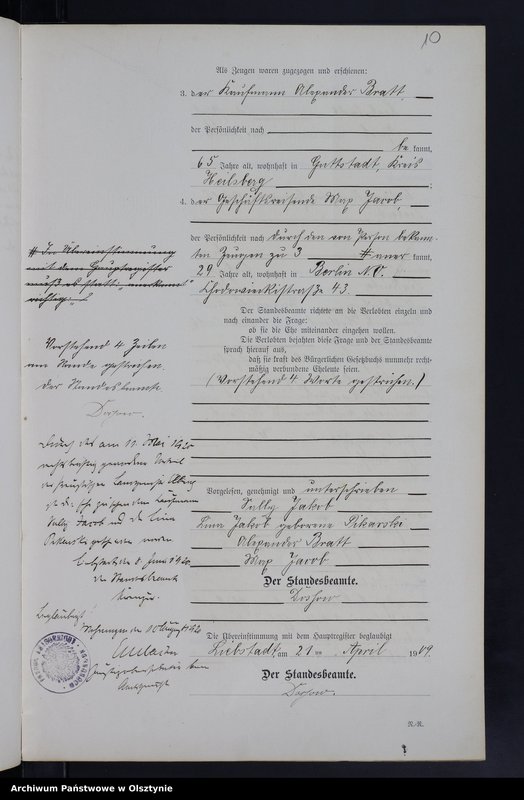 10
Als Zeugen waren zugezogen und erschienen:
3. der Kaufmann Alexander Bratt,
der Persönlichkeit nach
be kannt,
65 Jahre alt, wohnhaft in Guttstadt, Kreis
Heilsberg;
4. der Geschäftsreisende Max Jacob,
der Persönlichkeit nach durch den von Person bekann-
ten Zeugen zu 3 # aner kannt,
29 Jahre alt, wohnhaft in Berlin N.O.
Chodowieckistraße 43.
Der Standesbeamte richtete an die Verlobten einzeln und
nach einander die Frage:
ob sie die Ehe miteinander eingehen wollen.
Die Verlobten bejahten diese Frage und der Standesbeamte
sprach hierauf aus,
daß sie kraft des Bürgerlichen Gesetzbuchs nunmehr recht-
mäßig verbundene Eheleute seien.
(Vorstehend 4 Worte gestrichen.)
Vorgelesen, genehmigt und unterschrieben
Sally Jakob
Lina Jakob geborene Pikarski
Alexander Bratt
Max Jacob
Der Standesbeamte.
Die Übereinstimmung mit dem Hauptregister beglaubigt
Liebstadt, am 21 ten April 1909.
Der Standesbeamte.
# Die Übereinstimmung
mit dem Hauptregister
muß es statt "anerkannt"
Vorstehend 4 Zeilen
am Rande gestrichen.
Der Standesbeamte
Durch das am 11. Mai 1920
rechtskräftig gewordene Urteil
ist die Ehe zwischen dem Kaufmann
Sally Jacob und der Lina
Pikarski geschieden worden
Liebstadt, den 8. Juni 1920
Der Standesbeamte
Beglaubigt!
Mohrungen, den 10 August 1920
N.-R.
Archiwum Państwowe w Olsztynie